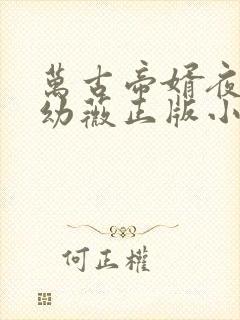 萬古帝婿夜
幼薇正版小
何正權